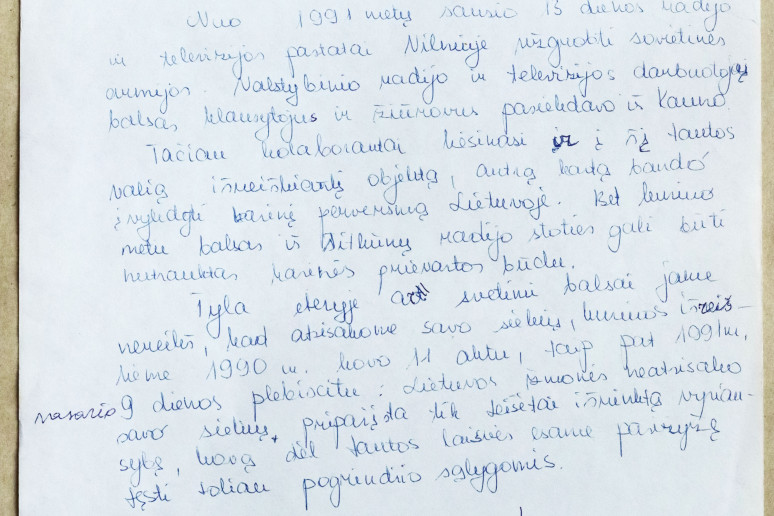 Nuo 1991 metų sausio 13 dienos radijo
ir televizijos pastatai Vilniuje užgrobti sovietinės
armijos. Valstybinio radijo ir televizijos darbuotojų
balsas klausytojus ir žiūrovus pasiekdavo iš Kauno.
Tačiau kolaborantai kėsinasi ir į šį tautos
valią išreiškiantį objektą, antrą kartą bandó
įvykdyti karinį perversmą Lietuvoje. Bet kuriuo
metu balsas iš Sitkūnų radijo stoties gali būti
nutrauktas karinės prievartos būdu.
Tyla eteryje ar svetimi balsai jame
nereikš, kad atsisakome savo siekių, kuriuos išreiš-
kėme 1990 m. kovo 11 aktu, taip pat 1991 m.
vasario 9 dienos plebiscitu: Lietuvos žmonės neatsisako
savo siekių, pripažįsta tik teisėtai išrinktą vyriau-
sybę, kovą dėl tautos laisvės esame pasiryžę
tęsti toliau pogrindžio sąlygomis.